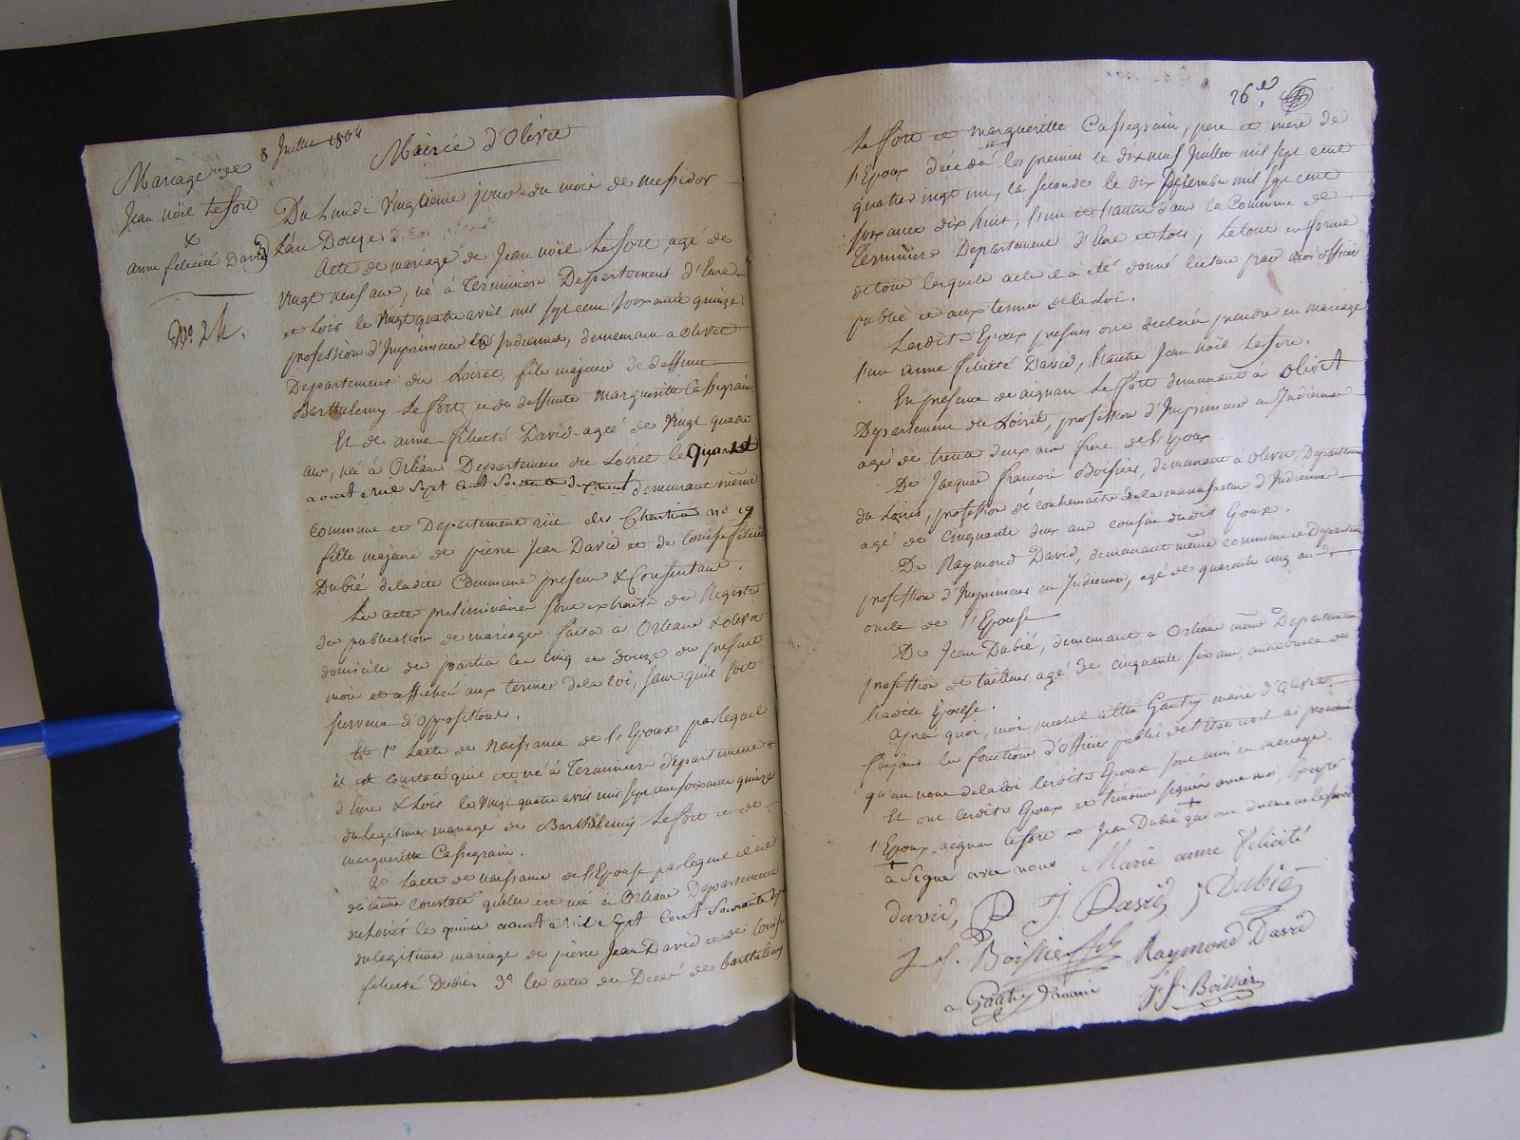 8 Juillet 1804
Mairie d'Olivet
Mariage
Jean Noël Lefort
&
anne felicité David
No. 24.
Du Lundi Vingtieme jour du mois de messidor
L'an Douze
Acte de mariage de Jean Noël Lefort, agé de
vingt neuf ans, né à Terminiers Departement d'Eure
et Loir le vingt quatre avril mil sept cent soixante quinze
profession d'Imprimeur en Indiennes, demeurant a olivet
Departement du Loiret, fils majeur de deffunt
Barthelemy Lefort, et de deffunte Marguerite Cassegrain
Et de anne felicité David agée de vingt quatre
ans, née à Orléans Departement du Loiret le quinze
aoust mil sept cent soixante dix neuf demeurant même
commune et Departement rue des Chartiers no 19
fille majeure de pierre Jean David et de Louise felicité
Dubié de ladite Commune present & Consentans.
Les actes preliminaires sont extraits des Registres
de publication de mariages faites a Orleans & olivet
domicile des parties les cinq et douze du present
mois et affichés aux termes de la loi, sans qu'il soit
survenu d'oppositions.
1o Lacte de Naissance de l'Epoux par lequel
il est constaté qu'il est né à Terminiers departement
d'Eure & Loir le vingt quatre avril mil sept cent soixante quinze
du legitime mariage de Barthelemy Lefort et de
marguerite Cassegrain.
2o Lacte de naissance de l'Epouse par lequel il est
de même constaté qu'elle est née à Orléans Departement
du Loiret le quinze aoust mil sept cent soixante dix
du legitime mariage de pierre Jean David et de Louise
felicité Dubié 3o les actes de Décès de barthelemy
26e
Lefort et marguerite Cassegrain, pere et mere de
l'Epoux décédés les premier le dix neuf Juillet mil sept cent
quatre vingt un, la seconde le dix septembre mil sept cent
soixante dix huit, l'un et l'autre dans la Commune de
Terminiers Departement d'Eure et Loir, le tout en forme
de tous lesquels actes il a été donné lecture par moi officier
public et aux termes de la Loi.
Lesdits Epoux presents ont declaré prendre en mariage
l'un anne felicité David, l'autre Jean Noël Lefort.
En presence de aignan Lefort demeurant a olivet
Departement du Loiret, profession d'Imprimeur en Indienne
agé de trente deux ans frere de l'Epoux
De Jacques francois Boissier, demeurant a olivet, Departement
du Loiret, profession de contremaitre de la manufacture d'Indienne
agé de cinquante deux ans cousin dudit Epoux.
De Raymond David, demeurant même commune et Departement
profession d'Imprimeur en Indiennes, agé de quarante cinq ans
oncle de l'Epouse
De Jean Dubié, demeurant a Orléans même Departement
profession de tailleur agé de cinquante six ans, aussi oncle de
ladite Epouse.
Après quoi, moi, michel Gautry maire d'olivet
faisant les fonctions d'officier public de l'état civil ai prononcé
qu'au nom de la loi lesdits Epoux sont unis en mariage.
Et ont lesdits Epoux et temoins signés avec moi, Excepté
l'Epoux, aignan Lefort et Jean Dubié qui ont declaré ne le savoir
à Signé avec nous Marie anne Felicité
david, P. J. David J Dubié
J. f. Boissier fils Raymond David
Gautry maire J f Boissier